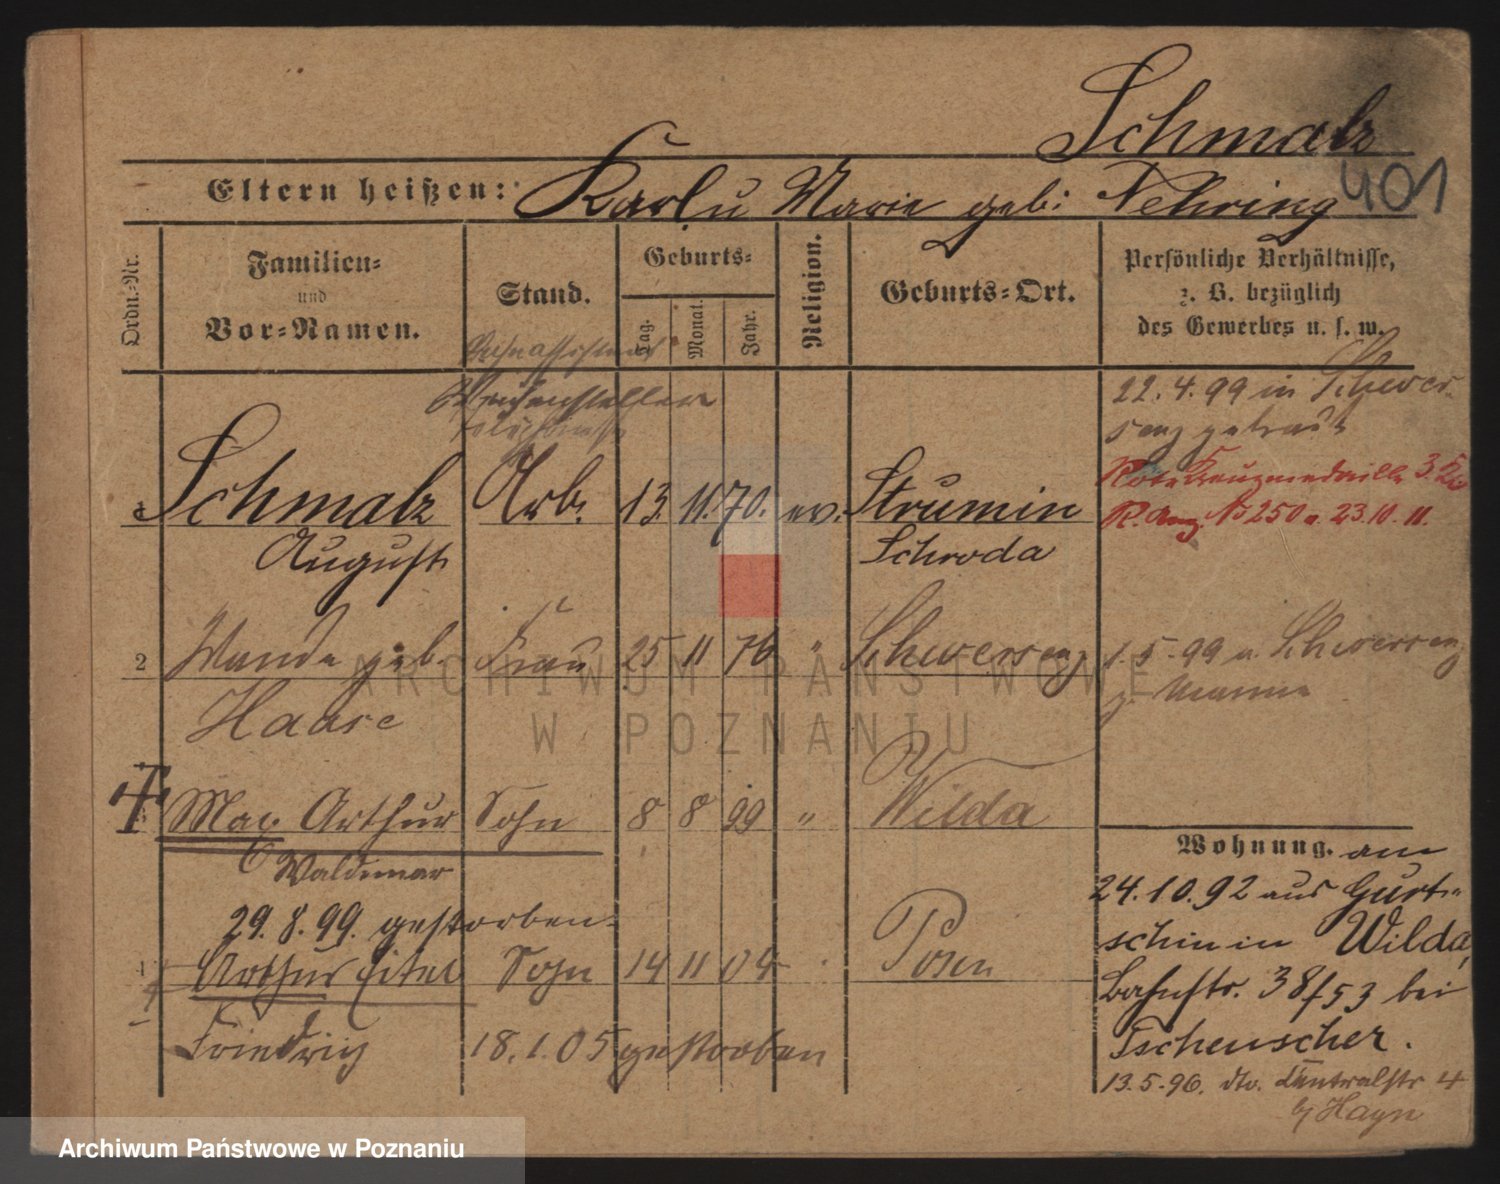 Schmalz
401
Eltern heißen: Karl u Marie geb: Nehring
Ordn.-Nr.
Familien- und Vor-Namen.
Stand.
Geburts-
Tag.
Monat.
Jahr.
Religion.
Geburts-Ort.
Persönliche Verhältnisse,
z. B. bezüglich
des Gewerbes u. s. w.
Weichensteller
22.4.99 in Schwer-
senz getraut
1 Schmalz Arb. 13. 11. 70. ev. Strumin
Rote Kreuzmedaille 3. Kl.
R. Anz. No 250 v. 23.10.11.
August Schroda
2 Wanda geb. Frau 25 11 76 " Schwersenz
1.5.99 v. Schwersenz
z. Manne
Haase
3 Max Arthur Sohn 8 8 99 " Wilda
Waldemar
29.8.99. gestorben.
4 Arthur Eitel Sohn 14 11 04 Posen
Friedrich 18.1.05 gestorben
Wohnung. am
24.10.92 aus Gurt-
schin in Wilda,
Bahnstr. 38/53 bei
Tscheuscher.
13.5.96. dto. Centralstr 4
b/ Hayn
ARCHIWUM PAŃSTWOWE
W POZNANIU
Archiwum Państwowe w Poznaniu